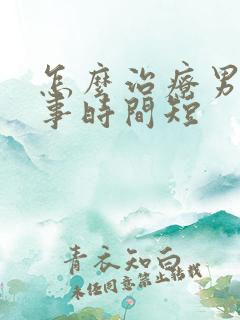 怎麼治療男
事時間短
青衣知白
未任同意禁止轉載